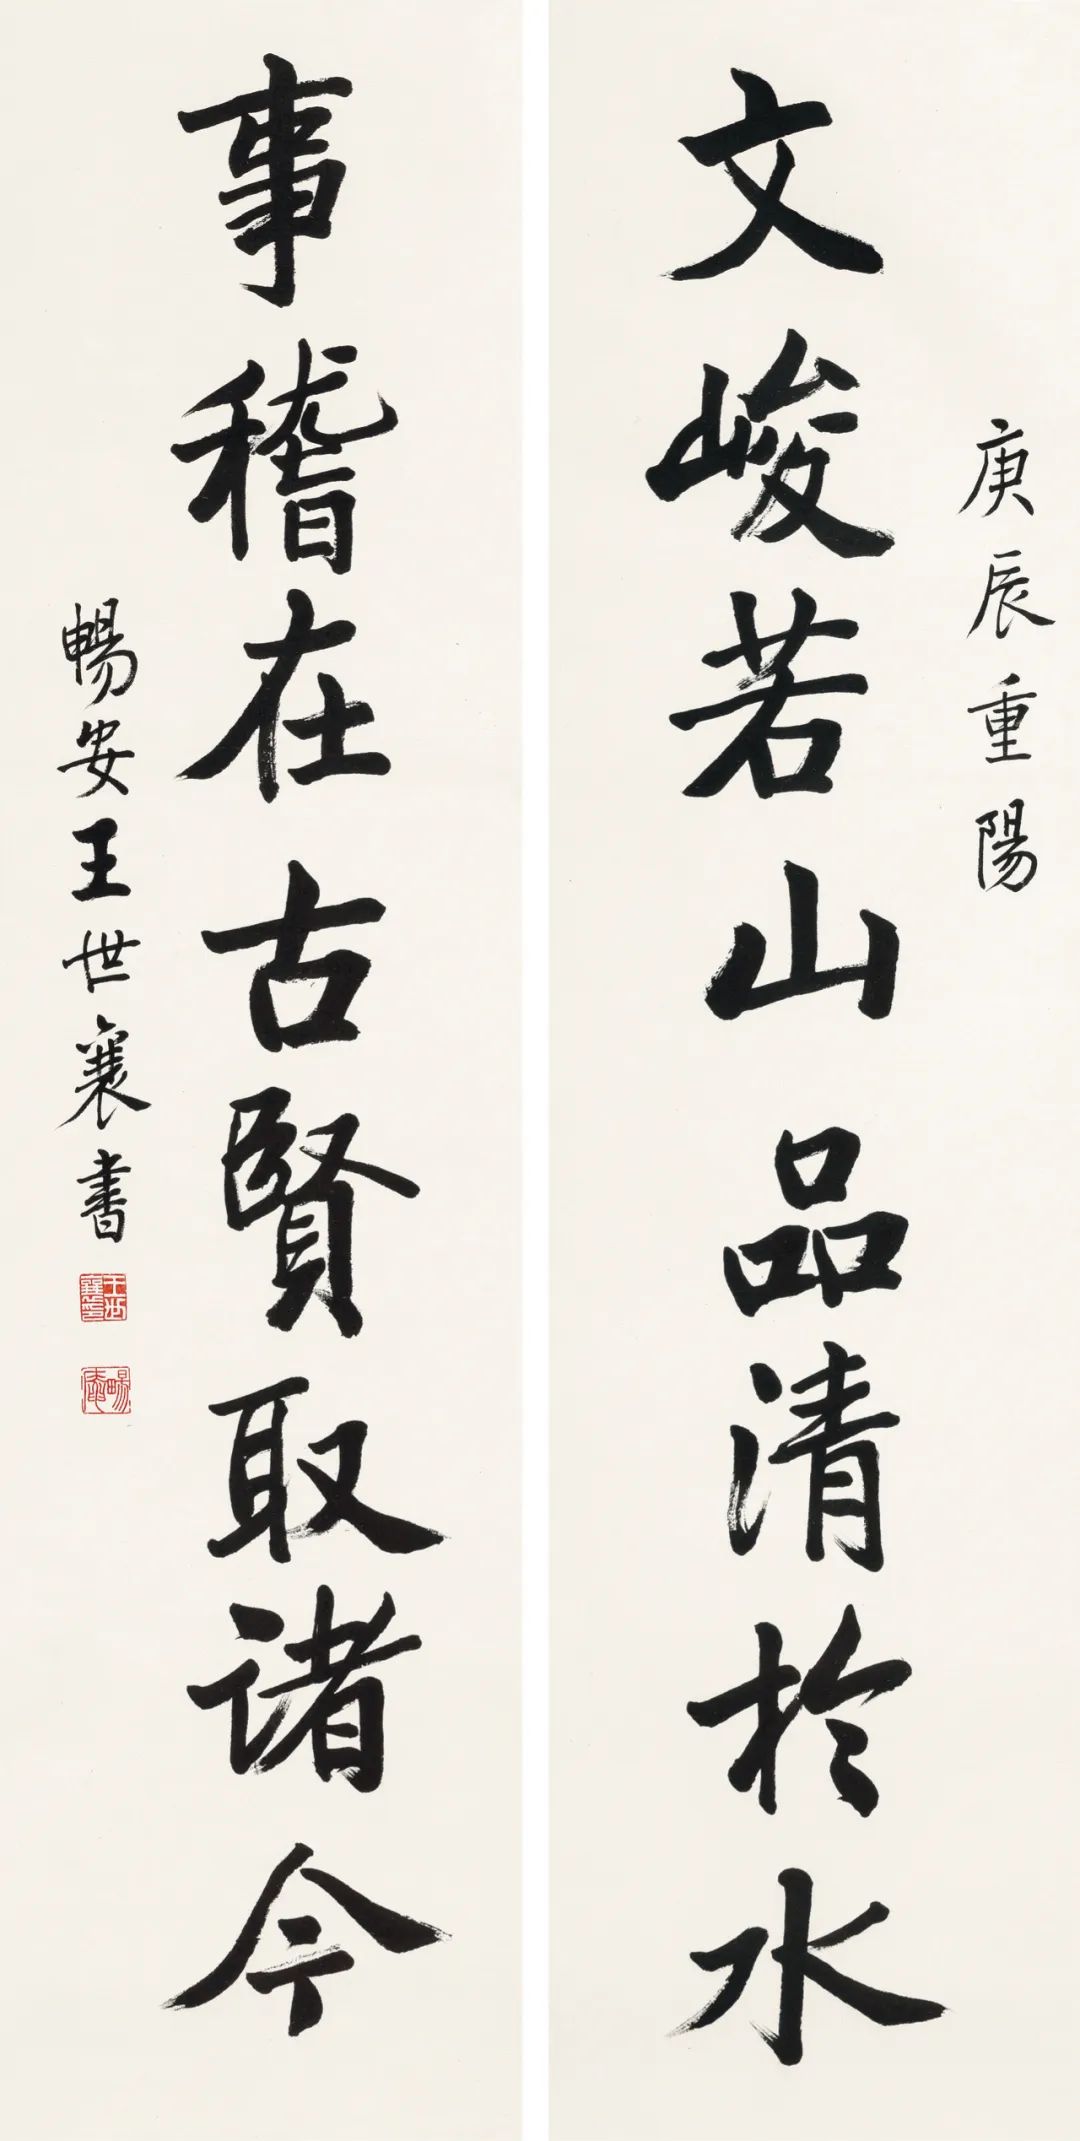 庚辰重陽
文峻若山品清於水
事稽在古賢取諸今
暢安王世襄書
王世襄印
暢安